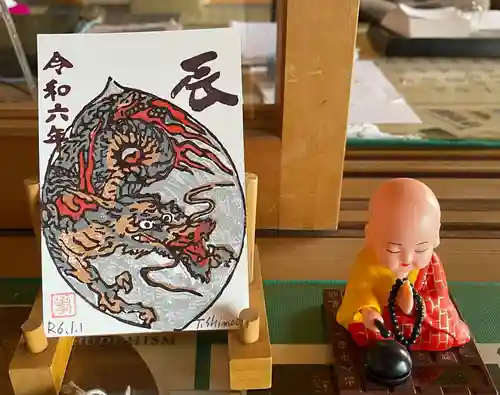 辰
令和六年
R6.1.1
BUDDHISM